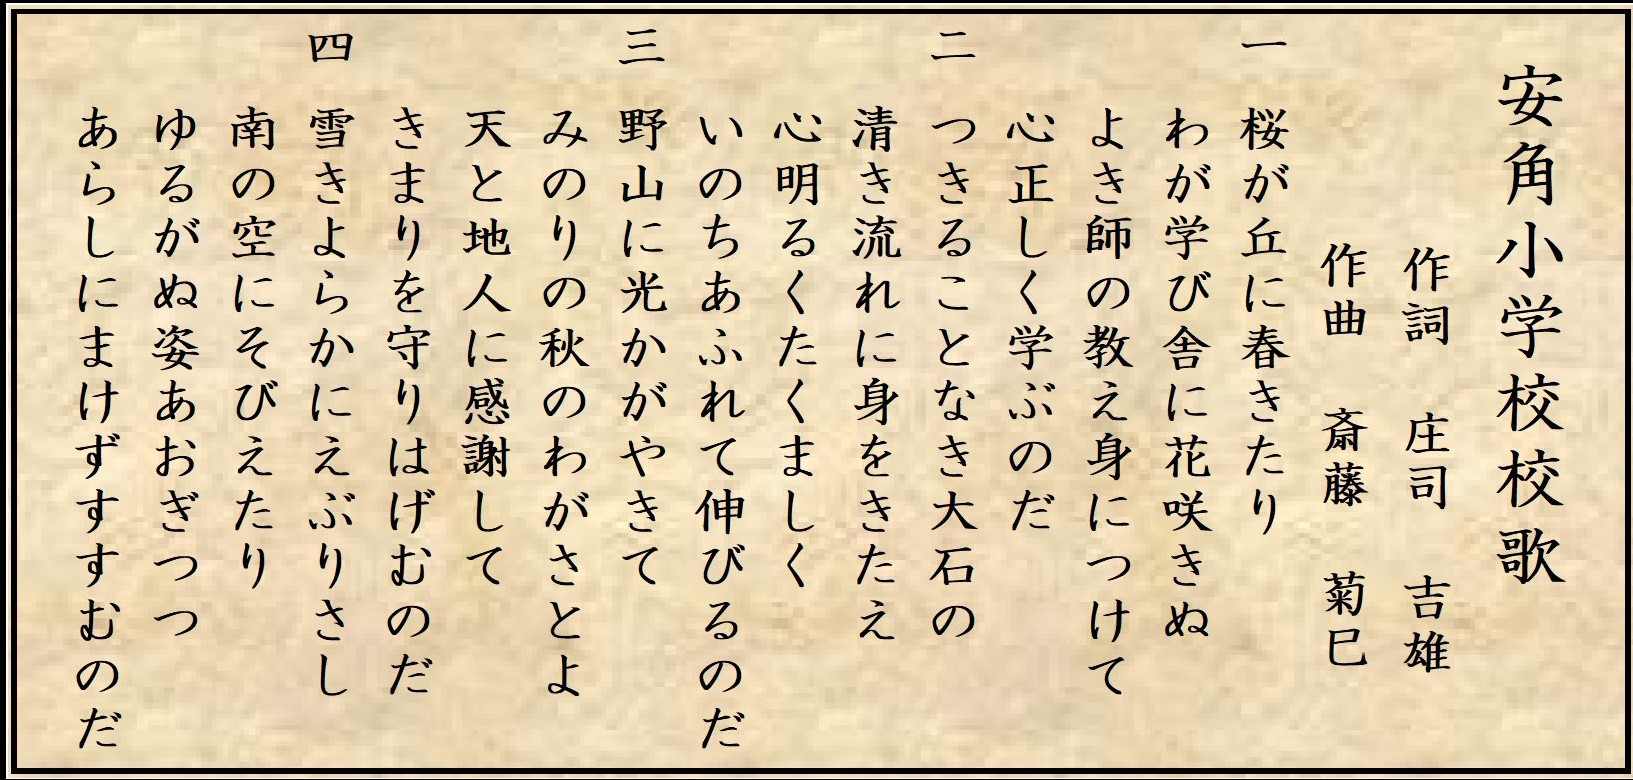 安角小学校校歌
作詞 庄司 吉雄
作曲 斎藤 菊巳
一 桜が丘に春きたり
わが学び舎に花咲きぬ
よき師の教え身につけて
心正しく学ぶのだ
二 つきることなき大石の
清き流れに身をきたえ
心明るくたくましく
いのちあふれて伸びるのだ
三 野山に光かがやきて
みのりの秋のわがさとよ
天と地人に感謝して
きまりを守りはげむのだ
四 雪きよらかにえぶりさし
南の空にそびえたり
ゆるがぬ姿あおぎつつ
あらしにまけずすすむのだ